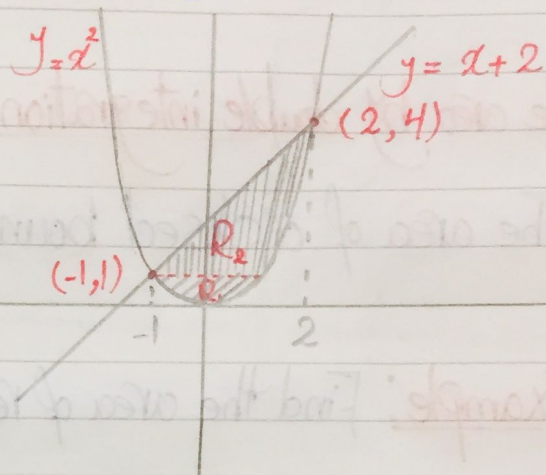 y=x²
y = x+2
(2,4)
R₂
(-1,1)
R₁
-1
2